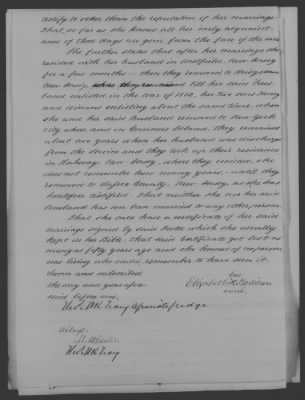 testify to other than the reputation of her marriage.
That, so far as she knows all her early acquaint-
ances of those days are gone from the face of the earth
She further states that after her marriage she
resided with her husband in Westfield, New Jersey
for a few months:- then they removed to
New Jersey till her said hus-
band enlisted in the war of 1812, her two sons Henry
and enlisting about the same time, when
she and her said husband removed to New York
city when and in Governors Island, they remained
about two years when her husband was discharged
from the service and they took up their residence
in Rahway, New Jersey, where they resided, she
does not remember how many years - until they
removed to Sussex County, New Jersey, as she has
heretofore testified. That neither she nor her said
husband has ever been married to any other person.
That she once had a certificate of her said
marriage signed by said which she usually
kept in her Bible; that said certificate got lost as
many as fifty years ago and she knows of no person
now living who could remember to have seen it.
Sworn and subscribed
the day and year afore- her
said before me, Elizabeth X
mark.
Tracy a Judge
Attest.
Tracy